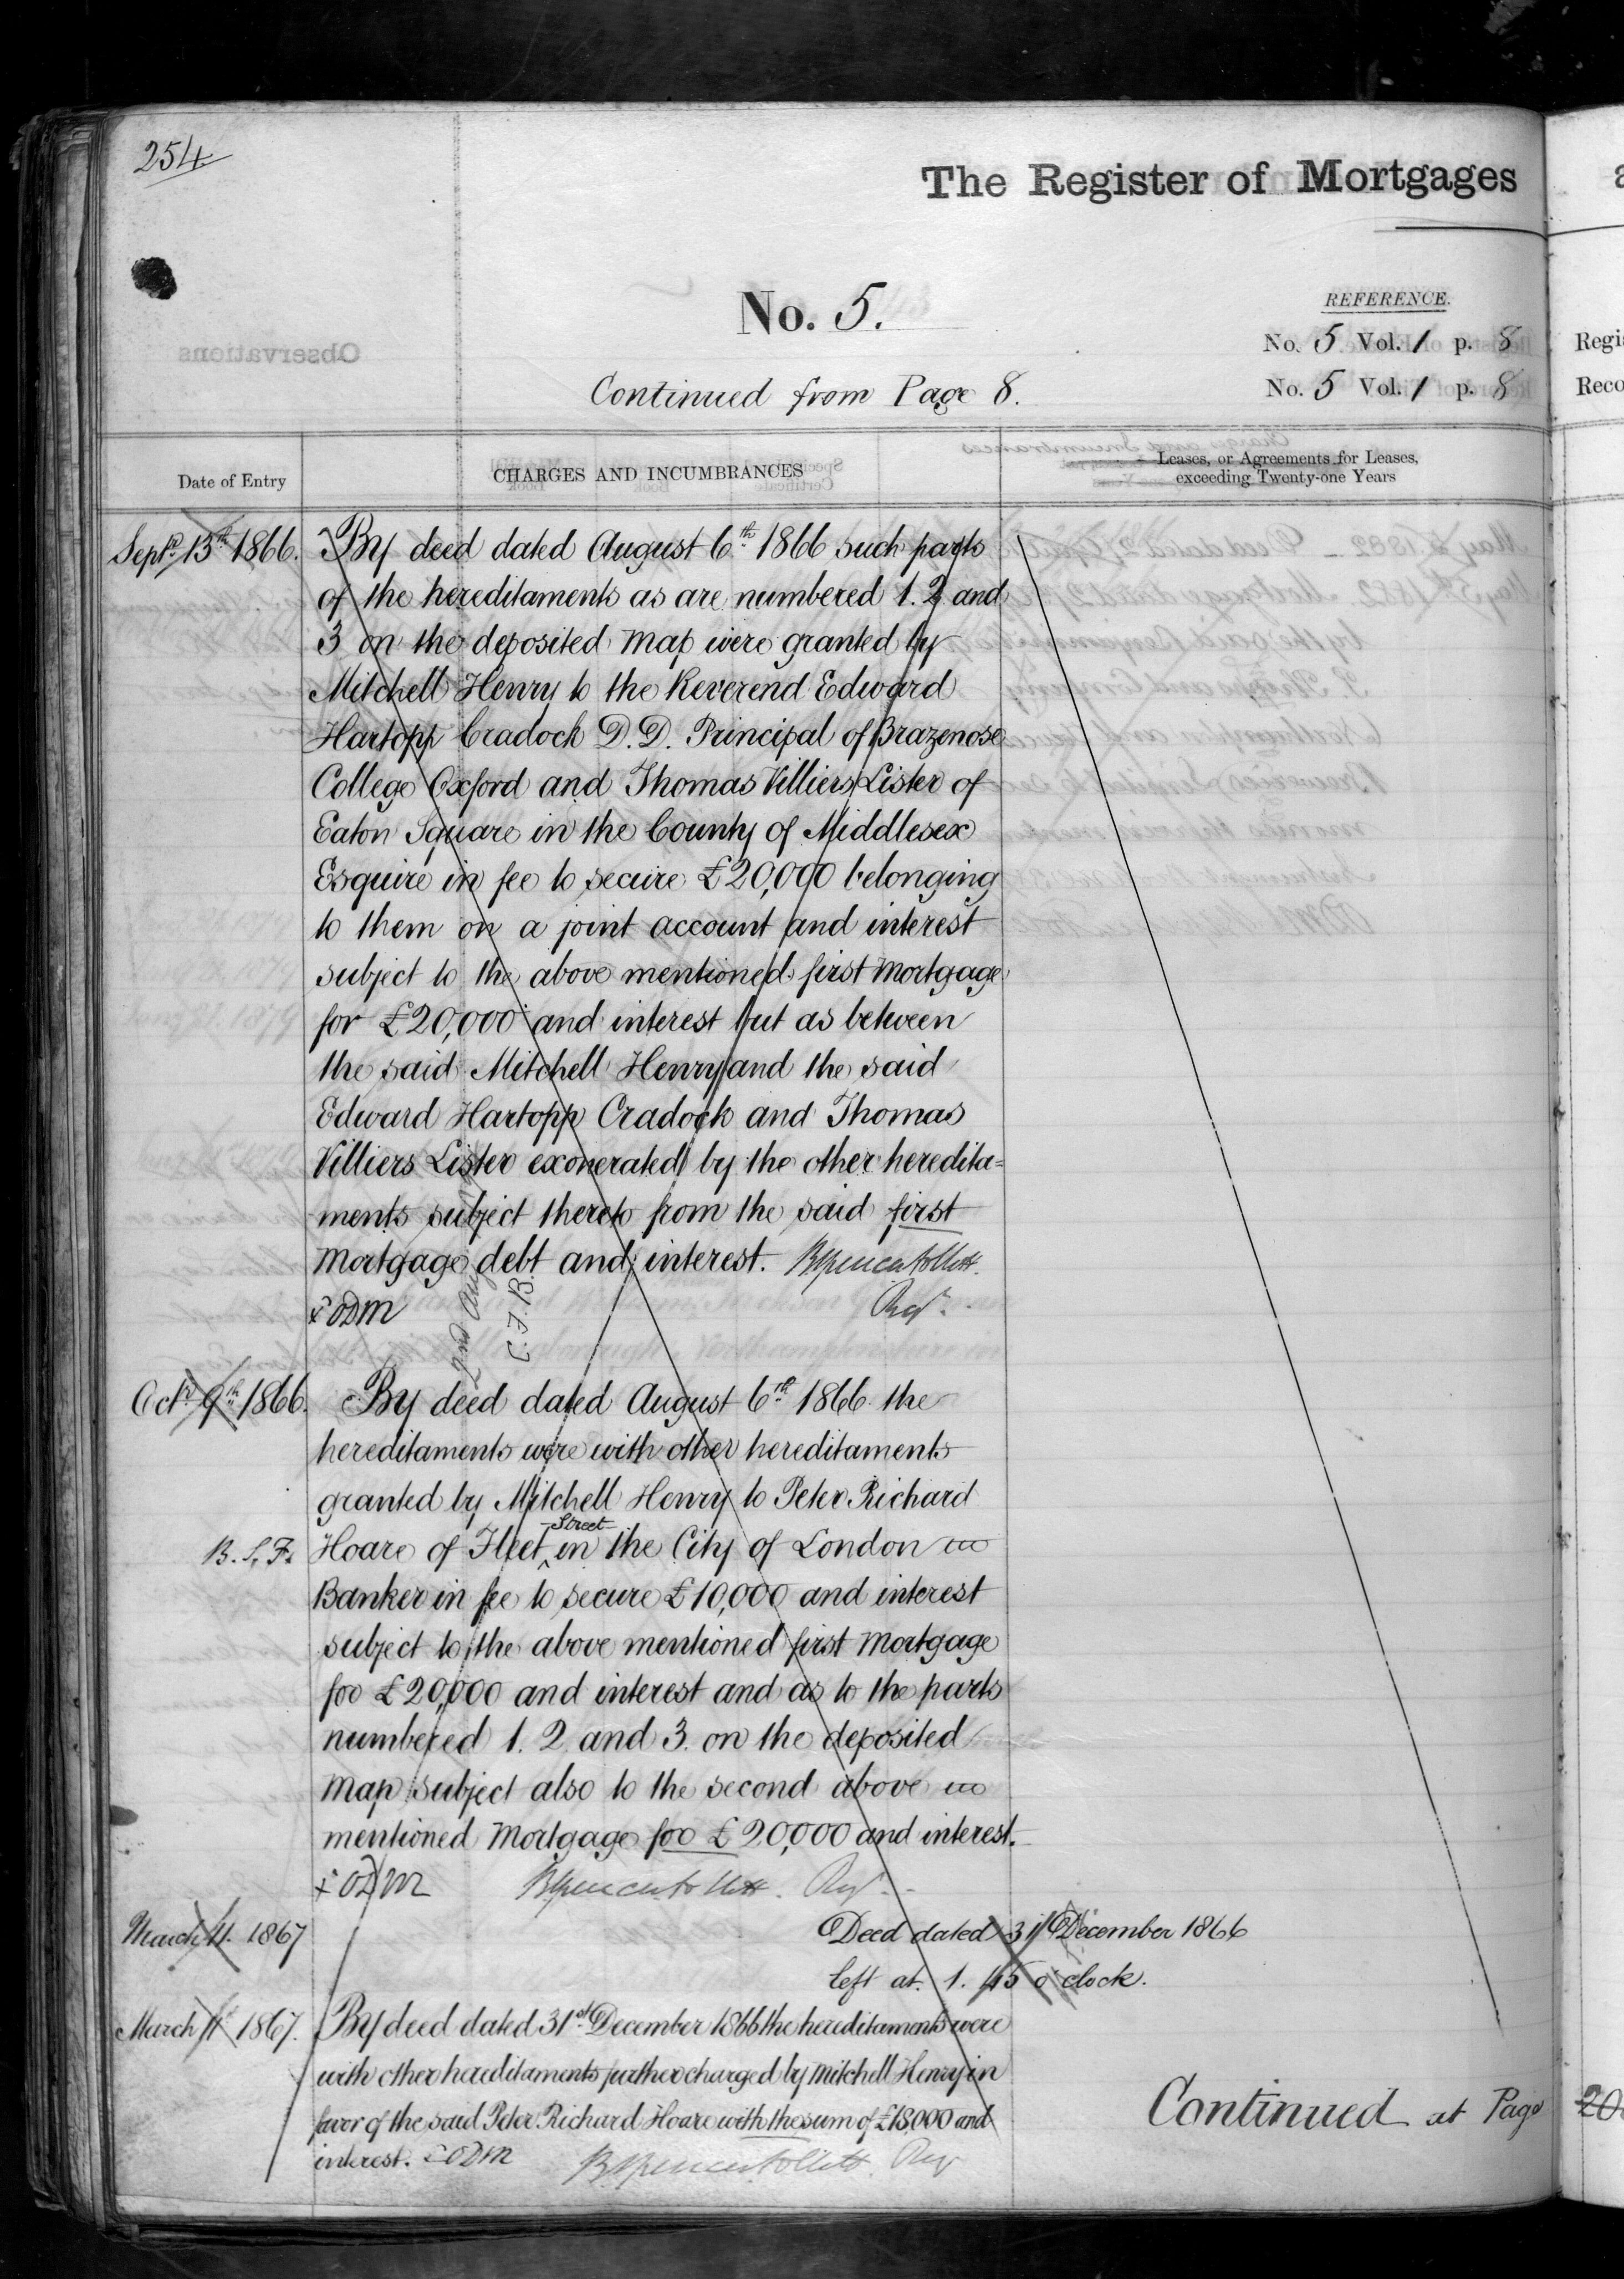 254
The Register of Mortgages
No. 5.
REFERENCE.
No. 5 Vol. 1 p. 8
Regi
Continued from Page 8.
No. 5 Vol. 1 p. 8
Reco
Date of Entry
CHARGES AND INCUMBRANCES
Leases, or Agreements for Leases,
exceeding Twenty-one Years
Septr. 13th 1866. By deed dated August 6th 1866 such parts
of the hereditaments as are numbered 1. 2 and
3 on the deposited map were granted by
Mitchell Henry to the Reverend Edward
Hartopp Cradock D.D. Principal of Brazenose
College Oxford and Thomas Villiers Lister of
Eaton Square in the County of Middlesex
Esquire in fee to secure £20,000 belonging
to them on a joint account and interest
subject to the above mentioned first mortgage
for £20,000 and interest but as between
the said Mitchell Henry and the said
Edward Hartopp Cradock and Thomas
Villiers Lister exonerated by the other heredita=
ments subject thereto from the said first
mortgage debt and interest. BSpencer Follett
ODM Regr.
C.F.B.
Octr. 9th 1866. By deed dated August 6th 1866 the
hereditaments were with other hereditaments
granted by Mitchell Henry to Peter Richard
B.S.F. Hoare of Fleet Street in the City of London
Banker in fee to secure £10,000 and interest
subject to the above mentioned first mortgage
for £20,000 and interest and as to the parts
numbered 1. 2 and 3 on the deposited
map subject also to the second above
mentioned mortgage for £20,000 and interest.
ODM BSpencer Follett. Regr.
March 4. 1867 Deed dated 31st December 1866
left at 1. 45 o'clock.
March 4th 1867. By deed dated 31st December 1866 the hereditaments were
with other hereditaments further charged by Mitchell Henry in
favor of the said Peter Richard Hoare with the sum of £18,000 and
interest. ODM BSpencer Follett Regr
Continued at Page